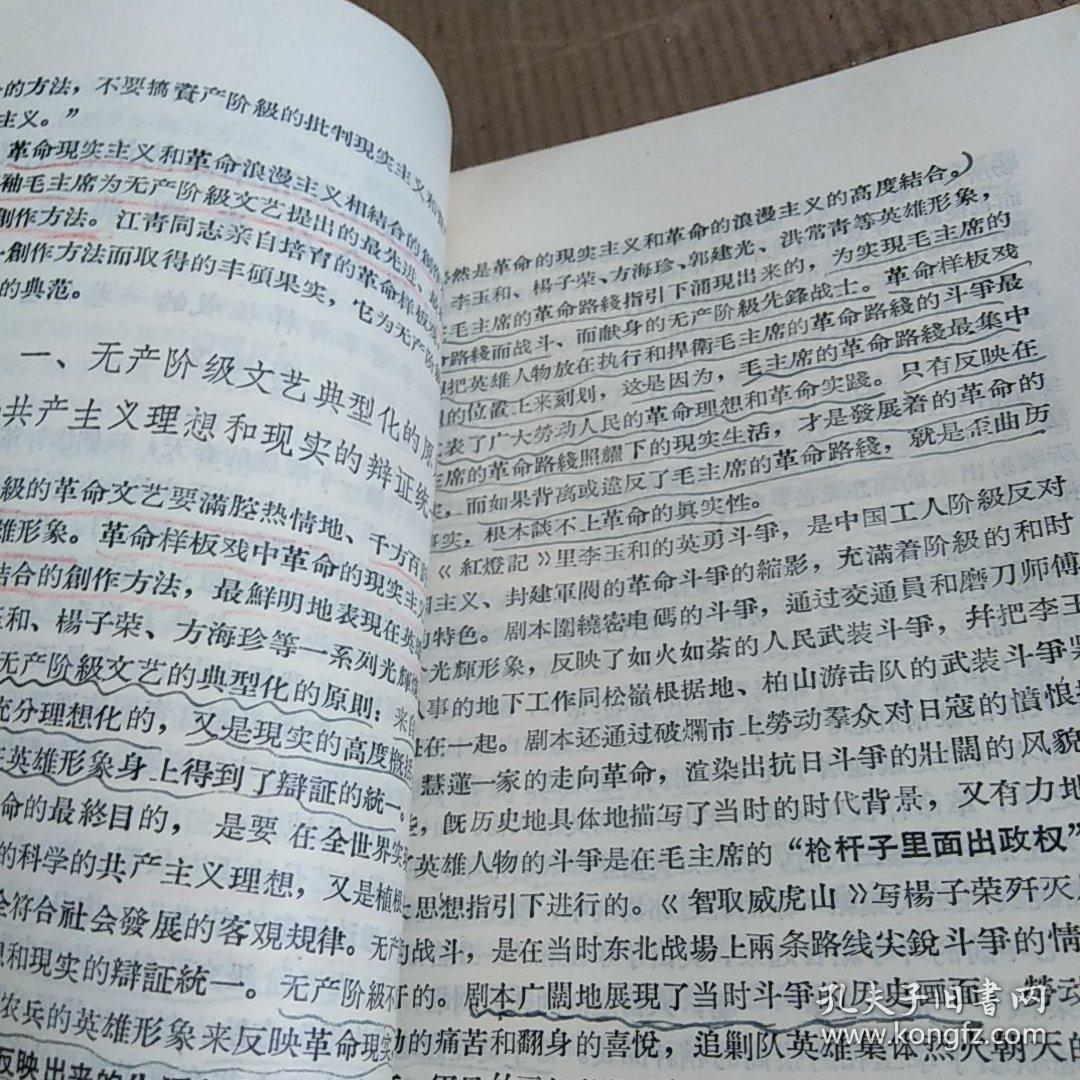 的方法，不要搞資产阶級的批判現実主义和
主义。”
革命現実主义和革命浪漫主义相結合的創作
袖毛主席为无产阶級文艺提出的最先进、
創作方法。江青同志亲自培育的革命样板
創作方法而取得的丰碩果实，它为无产阶
的典范。
一、无产阶级文艺典型化的原
共产主义理想和现实的辩证统
級的革命文艺要滿腔热情地、千方百
雄形象。革命样板戏中革命的現実主
結合的創作方法，最鮮明地表現在英
玉和、楊子荣、方海珍等一系列光輝
无产阶級文艺的典型化的原則：来
充分理想化的，又是現実的高度概括
英雄形象身上得到了辯証的統一。
命的最終目的，是要在全世界实
的科学的共产主义理想，又是植根
全符合社会發展的客观規律。无产
想和現実的辯証統一。无产阶級
农兵的英雄形象来反映革命現実
反映出来的
然是革命的現実主义和革命的浪漫主义的高度結合。
李玉和、楊子荣、方海珍、郭建光、洪常青等英雄形象，
毛主席的革命路綫指引下涌現出来的，为实現毛主席的
命路綫而战斗、而献身的无产阶級先鋒战士。革命样板戏
把英雄人物放在执行和捍衛毛主席的革命路綫的斗爭最
的位置上来刻划，这是因为，毛主席的革命路綫最集中
表了广大勞动人民的革命理想和革命实践。只有反映在
席的革命路綫照耀下的現実生活，才是發展着的革命的
实，而如果背离或違反了毛主席的革命路綫，就是歪曲历
事实，根本談不上革命的眞实性。
《紅燈記》里李玉和的英勇斗爭，是中国工人阶級反对
国主义、封建軍閥的革命斗爭的縮影，充滿着阶級的和时
的特色。剧本圍繞密电碼的斗爭，通过交通員和磨刀师傅
光輝形象，反映了如火如荼的人民武装斗爭，幷把李玉
人事的地下工作同松嶺根据地、柏山游击队的武装斗爭紧
在一起。剧本还通过破爛市上勞动羣众对日寇的憤恨
慧蓮一家的走向革命，渲染出抗日斗爭的壯闊的风貌
些，旣历史地具体地描写了当时的时代背景，又有力地
了英雄人物的斗爭是在毛主席的“枪杆子里面出政权”
思想指引下进行的。《智取威虎山》写楊子荣歼灭
的战斗，是在当时东北战場上兩条路线尖銳斗爭的情
的。剧本广闊地展現了当时斗爭的历史画面，勞动
的痛苦和翻身的喜悅，追剿队英雄集体热火朝天的
孔夫子旧書网
www.kongfz.com